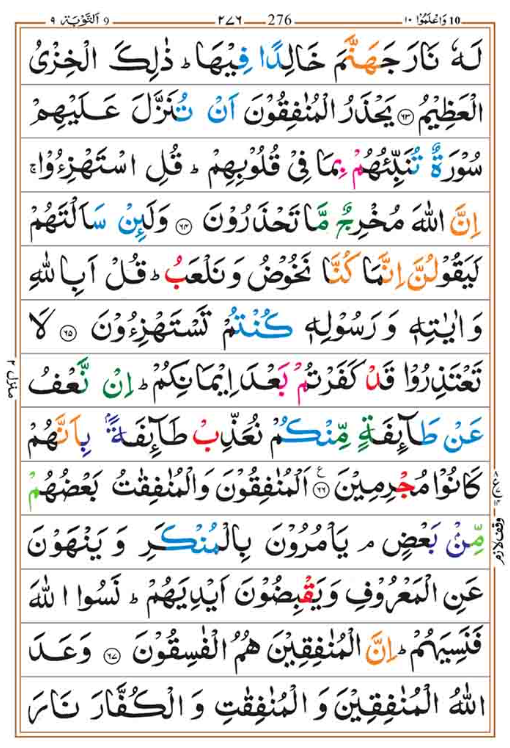 10 وَاعْلَمُوْٓا ١٠ 276 ٢٧٦ 9 اَلتَّوْبَة ٩
لَهٗ نَارَ جَهَنَّمَ خَالِدًا فِيْهَا ؕ ذٰلِكَ الْخِزْىُ
الْعَظِيْمُ ﴿۶۳﴾ يَحْذَرُ الْمُنٰفِقُوْنَ اَنْ تُنَزَّلَ عَلَيْهِمْ
سُوْرَةٌ تُنَبِّئُهُمْ بِمَا فِىْ قُلُوْبِهِمْ ؕ قُلِ اسْتَهْزِءُوْا ۚ
اِنَّ اللّٰهَ مُخْرِجٌ مَّا تَحْذَرُوْنَ ﴿۶۴﴾ وَلَئِنْ سَاَلْتَهُمْ
لَيَقُوْلُنَّ اِنَّمَا كُنَّا نَخُوْضُ وَنَلْعَبُ ؕ قُلْ اَبِاللّٰهِ
وَاٰيٰتِهٖ وَرَسُوْلِهٖ كُنْتُمْ تَسْتَهْزِءُوْنَ ﴿۶۵﴾ لَا
تَعْتَذِرُوْا قَدْ كَفَرْتُمْ بَعْدَ اِيْمَانِكُمْ ؕ اِنْ نَّعْفُ
عَنْ طَآئِفَةٍ مِّنْكُمْ نُعَذِّبْ طَآئِفَةًۢ بِاَنَّهُمْ
كَانُوْا مُجْرِمِيْنَ ﴿۶۶﴾ ع اَلْمُنٰفِقُوْنَ وَالْمُنٰفِقٰتُ بَعْضُهُمْ
مِّنْۢ بَعْضٍ ۘ يَاْمُرُوْنَ بِالْمُنْكَرِ وَيَنْهَوْنَ
عَنِ الْمَعْرُوْفِ وَيَقْبِضُوْنَ اَيْدِيَهُمْ ؕ نَسُوا اللّٰهَ
فَنَسِيَهُمْ ؕ اِنَّ الْمُنٰفِقِيْنَ هُمُ الْفٰسِقُوْنَ ﴿۶۷﴾ وَعَدَ
اللّٰهُ الْمُنٰفِقِيْنَ وَالْمُنٰفِقٰتِ وَالْكُفَّارَ نَارَ
منزل ٢
وقف لازم